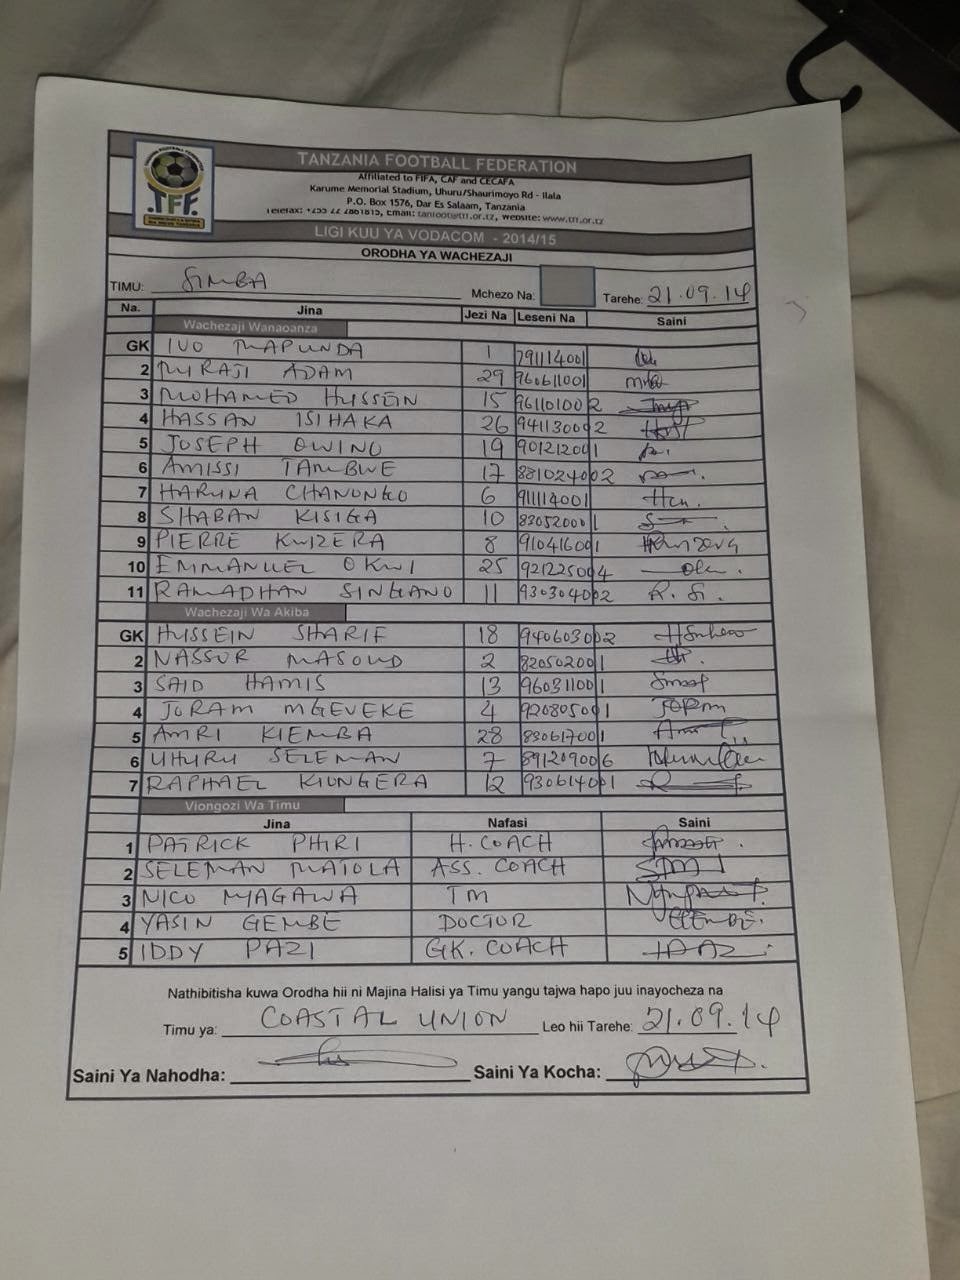 TANZANIA FOOTBALL FEDERATION
Affiliated to FIFA, CAF and CECAFA
Karume Memorial Stadium, Uhuru/Shaurimoyo Rd - Ilala
P.O. Box 1576, Dar Es Salaam, Tanzania
Telefax: +255 22 2861815, Email: tanfoot@tff.or.tz, Website: www.tff.or.tz
TFF
LIGI KUU YA VODACOM - 2014/15
ORODHA YA WACHEZAJI
TIMU: SIMBA Mchezo Na: Tarehe: 21.09.14
Na. Jina Jezi Na Leseni Na Saini
Wachezaji Wanaoanza
GK IVO MAPUNDA 1 791114001
2 MIRAJI ADAM 29 960611001
3 MOHAMED HUSSEIN 15 961101002
4 HASSAN ISIHAKA 26 941130002
5 JOSEPH OWINO 19 901212001
6 AMISSI TAMBWE 17 881024002
7 HARUNA CHANONGO 6 911114001
8 SHABAN KISIGA 10 830520001
9 PIERRE KWIZERA 8 910416001
10 EMMANUEL OKWI 25 921225004
11 RAMADHAN SINGANO 11 930304002 R. Si.
Wachezaji Wa Akiba
GK HUSSEIN SHARIF 18 940603002
2 NASSUR MASOUD 2 820502001
3 SAID HAMIS 13 960311001
4 JORAM MGEVEKE 4 920805001
5 AMRI KIEMBA 28 830617001
6 UHURU SELEMAN 7 891209006
7 RAPHAEL KIONGERA 12 930614001
Viongozi Wa Timu
Jina Nafasi Saini
1 PATRICK PHIRI H. COACH
2 SELEMAN MATOLA ASS. COACH
3 NICO MYAGAWA TM
4 YASIN GEMBE DOCTOR
5 IDDY PAZI GK. COACH
Nathibitisha kuwa Orodha hii ni Majina Halisi ya Timu yangu tajwa hapo juu inayocheza na
Timu ya: COASTAL UNION Leo hii Tarehe: 21.09.14
Saini Ya Nahodha: Saini Ya Kocha: